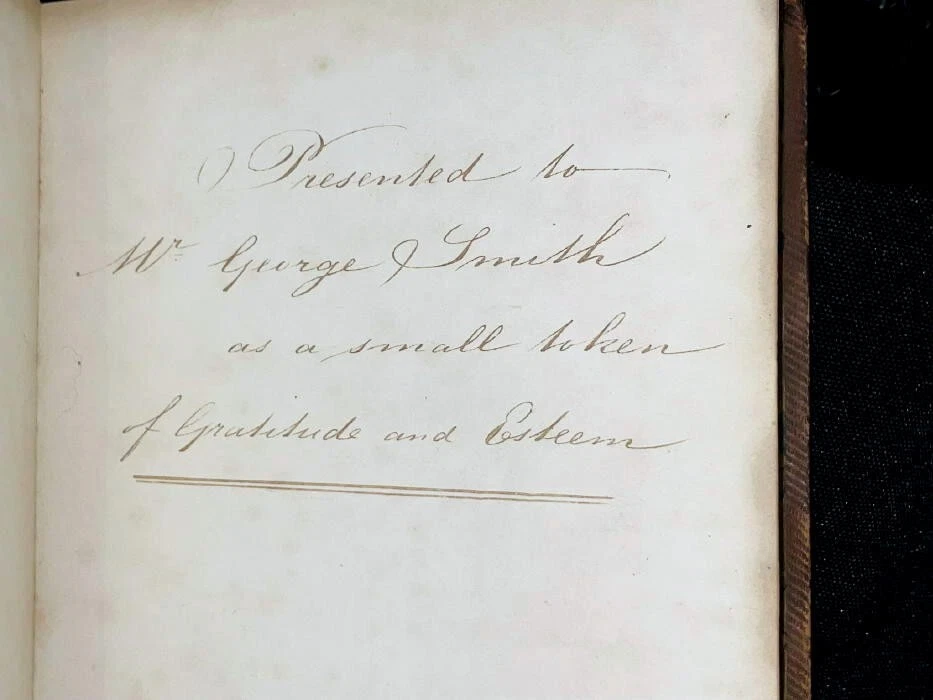 Presented to
Mr George Smith
as a small token
of Gratitude and Esteem